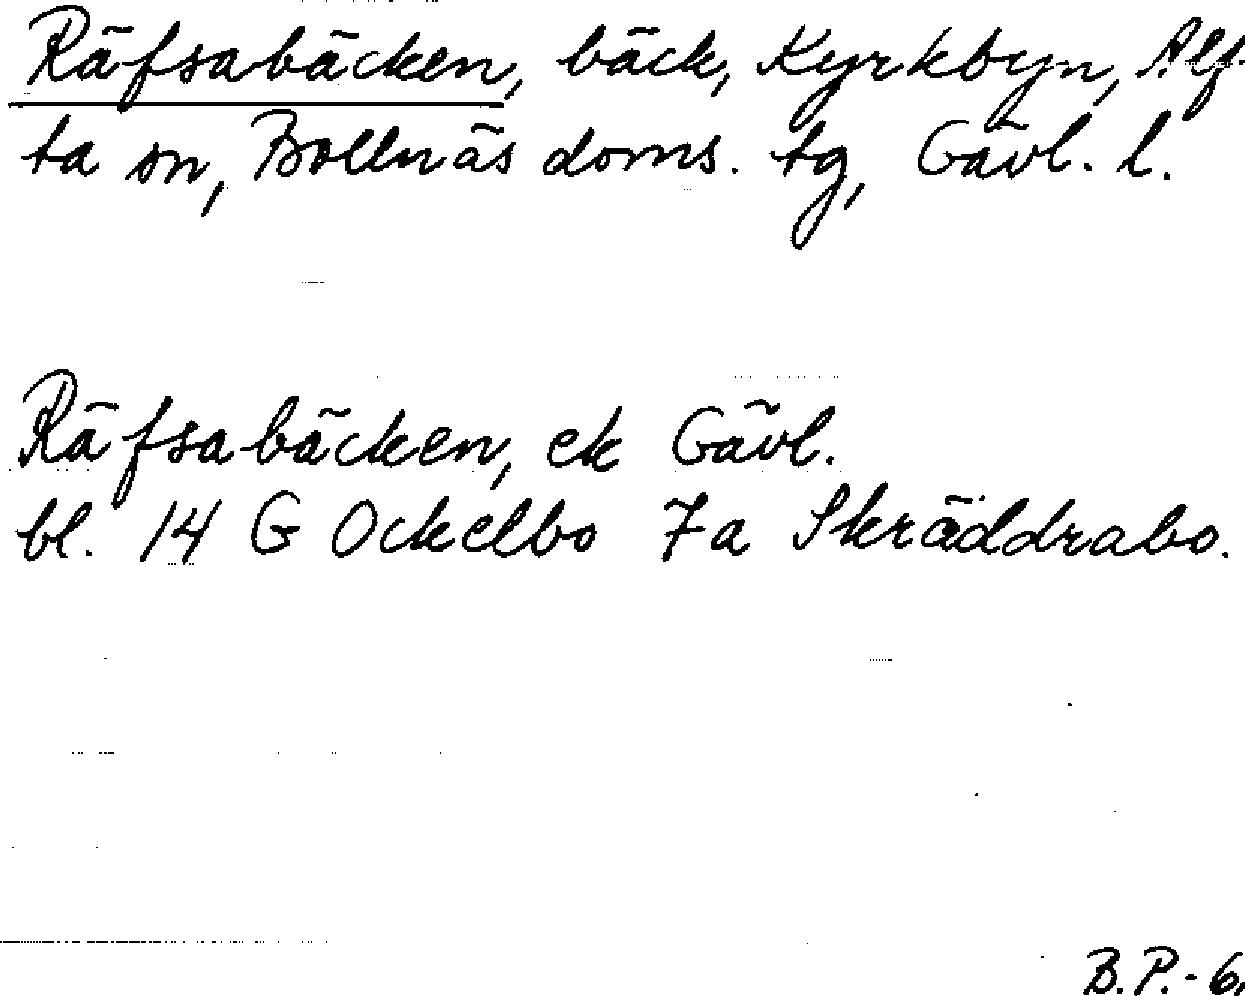 Räfsabäcken, bäck, Kyrkbyn, Alf-
ta sn, Bollnäs doms. tg, Gävl. l.
Räfsabäcken, ek Gävl.
bl. 14 G Ockelbo 7a Skräddrabo.
B.P.-6